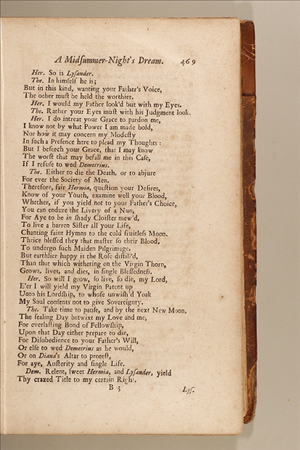 A Midsummer-Night's Dream. 469
Her. So is Lysander.
The. In himself he is;
But in this kind, wanting your Father's Voice,
The other must be held the worthier.
Her. I would my Father look'd but with my Eyes.
The. Rather your Eyes must with his Judgment look.
Her. I do intreat your Grace to pardon me,
I know not by what Power I am made bold,
Nor how it may concern my Modesty
In such a Presence here to plead my Thoughts:
But I beseech your Grace, that I may know
The worst that may befall me in this Case,
If I refuse to wed Demetrius.
The. Either to die the Death, or to abjure
For ever the Society of Men.
Therefore, fair Hermia, question your Desires,
Know of your Youth, examine well your Blood,
Whether, if you yield not to your Father's Choice,
You can endure the Livery of a Nun,
For Aye to be in shady Cloister mew'd,
To live a barren Sister all your Life,
Chanting faint Hymns to the cold fruitless Moon.
Thrice blessed they that master so their Blood,
To undergo such Maiden Pilgrimage.
But earthlier happy is the Rose distill'd,
Than that which withering on the Virgin Thorn,
Grows, lives, and dies, in single Blessedness.
Her. So will I grow, so live, so die, my Lord,
E'er I will yield my Virgin Patent up
Unto his Lordship, to whose unwish'd Yoak
My Soul consents not to give Sovereignty.
The. Take time to pause, and by the next New Moon,
The sealing Day betwixt my Love and me,
For everlasting Bond of Fellowship,
Upon that Day either prepare to die,
For Disobedience to your Father's Will,
Or else to wed Demetrius as he would,
Or on Diana's Altar to protest,
For aye, Austerity and single Life.
Dem. Relent, sweet Hermia, and Lysander, yield
Thy crazed Title to my certain Right.
B 3 Lys.